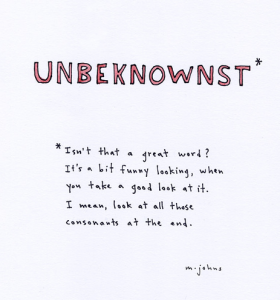 UNBEKNOWNST*
* Isn't that a great word?
It's a bit funny looking, when
you take a good look at it.
I mean, look at all those
consonants at the end.
m.johns